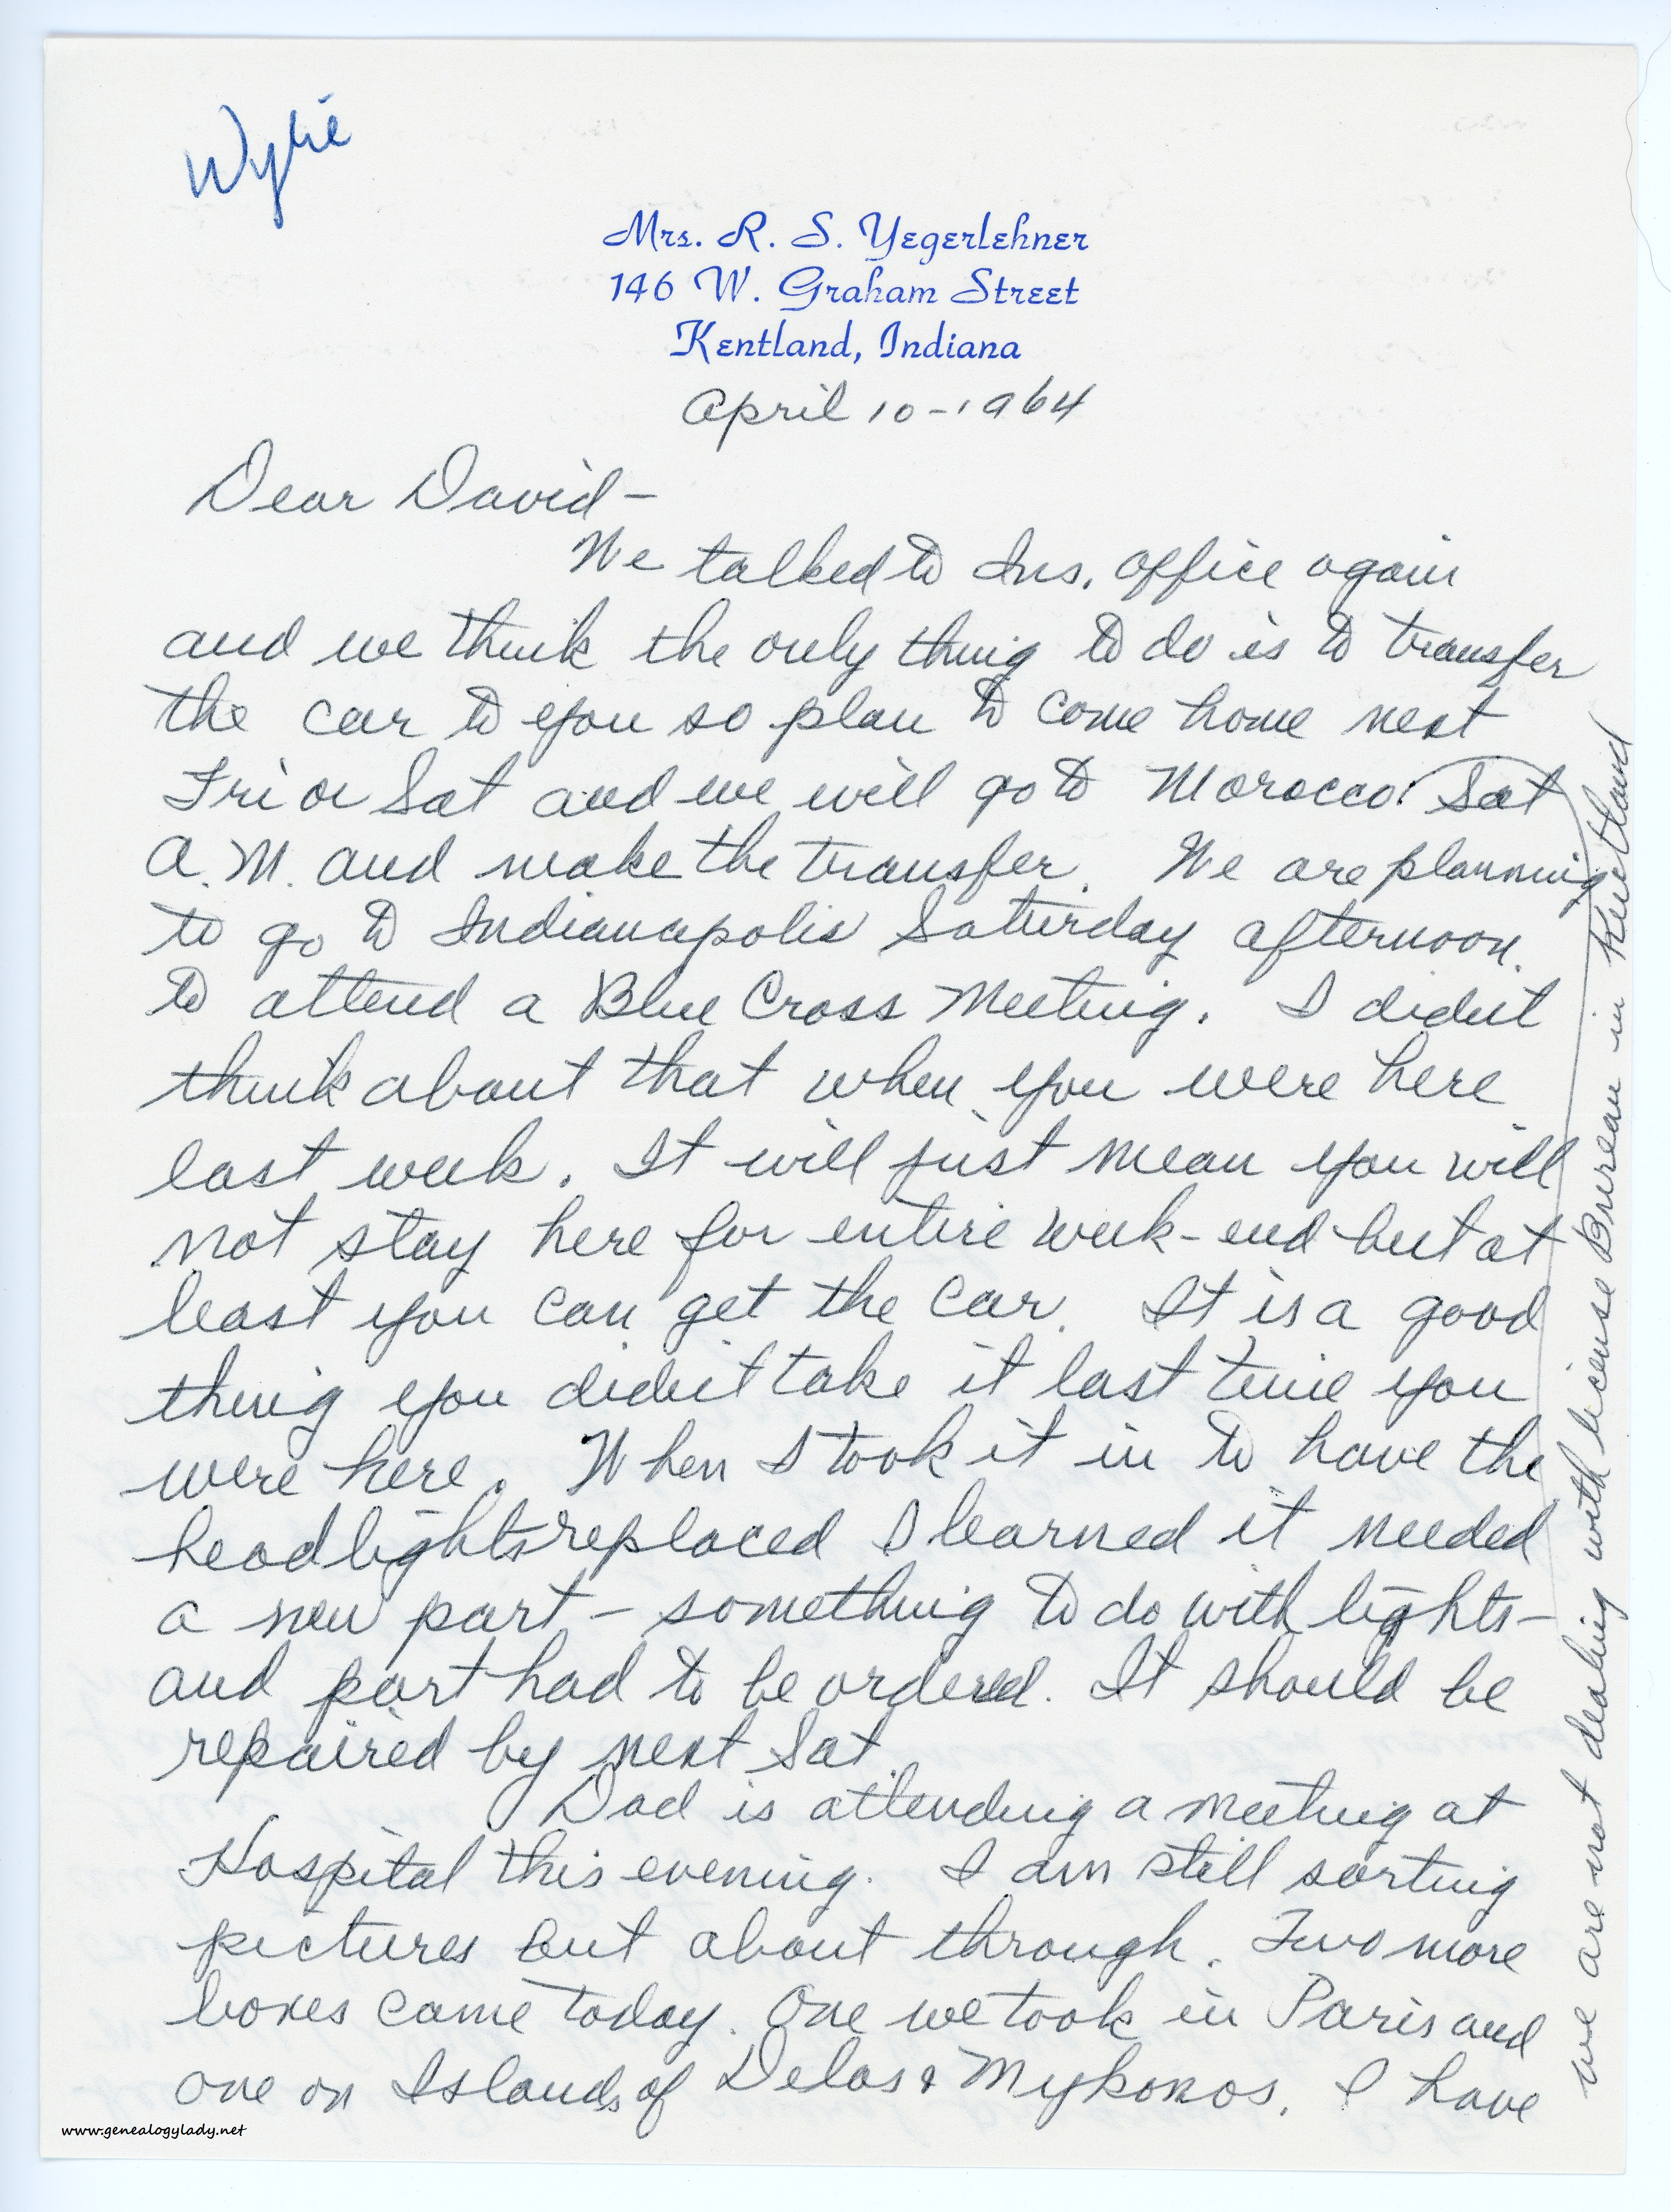 Wylie
Mrs. R. S. Yegerlehner
146 W. Graham Street
Kentland, Indiana
April 10-1964
Dear David-
We talked to Ins. office again
and we think the only thing to do is to transfer
the car to you so plan to come home next
Fri or Sat and we will go to Morocco Sat
A.M. and make the transfer. We are planning
to go to Indianapolis Saturday afternoon.
to attend a Blue Cross Meeting. I didn't
think about that when you were here
last week. It will just mean you will
not stay here for entire week-end but at
least you can get the car. It is a good
thing you didn't take it last time you
were here. When I took it in to have the
headlights replaced I learned it needed
a new part - something to do with lights-
and part had to be ordered. It should be
repaired by next Sat.
Dad is attending a meeting at
Hospital this evening. I am still sorting
pictures but about through. Two more
boxes came today. One we took in Paris and
one on Islands of Delos & Mykonos. I have
we are not dealing with license Bureau in Kentland
www.genealogylady.net